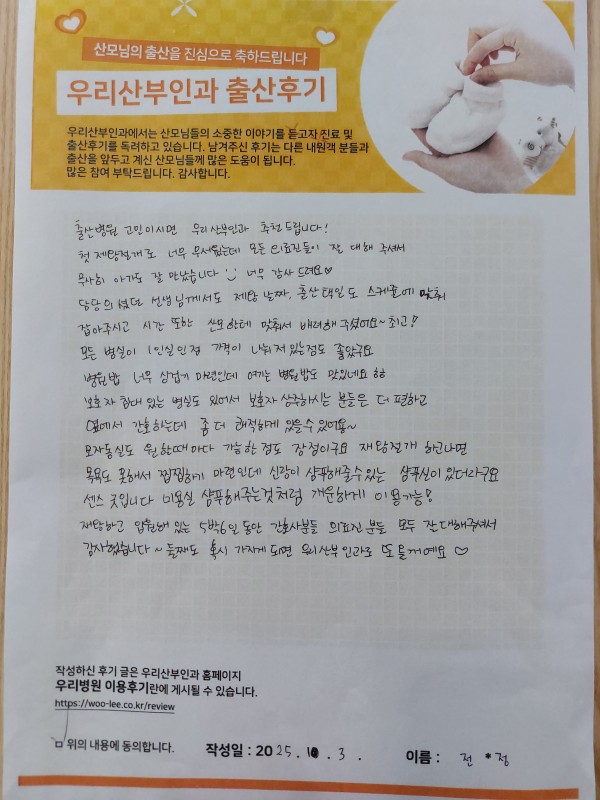 산모님의 출산을 진심으로 축하드립니다
우리산부인과 출산후기
우리산부인과에서는 산모님들의 소중한 이야기를 듣고자 진료 및
출산후기를 독려하고 있습니다. 남겨주신 후기는 다른 내원객 분들과
출산을 앞두고 계신 산모님들께 많은 도움이 됩니다.
많은 참여 부탁드립니다. 감사합니다.
출산병원 고민이시면 우리산부인과 추천드립니다!
첫 제왕절개로 너무 무서웠는데 모든 의료진들이 잘 대해 주셔서
무사히 아가도 잘 만났습니다 너무 감사 드려요♡
담당의셨던 선생님께서도 제왕 날짜, 출산택일도 스케줄에 맞춰
잡아주시고 시간 또한 산모한테 맞춰서 배려해 주셨어요~ 최고!
모든 병실이 1인실인점 가격이 나눠져있는점도 좋았구요
병원밥 너무 싱겁기 마련인데 여기는 병원밥도 맛있네요 ㅎㅎ
보호자 침대 있는 병실도 있어서 보호자 상주하시는 분들은 더 편하고
옆에서 간호하는데 좀 더 쾌적하게 있을수 있어용~
모자동실도 원할때마다 가능한점도 장점이구요 제왕절개 하고나면
목욕도 못해서 찝찝하기 마련인데 신랑이 샴푸해줄수있는 샴푸실이 있더라구요
센스 굿입니다 미용실 샴푸해주는것처럼 개운하게 이용가능!
제왕하고 입원해 있는 5박6일 동안 간호사분들 의료진 분들 모두 잘대해주셔서
감사했습니다~ 둘째도 혹시 가지게 되면 우리산부인과로 또 올거예요 ♡
작성하신 후기 글은 우리산부인과 홈페이지
우리병원 이용후기란에 게시될 수 있습니다.
https://woo-lee.co.kr/review
위의 내용에 동의합니다. 작성일 : 2025. 10. 3. 이름 : 전 *정